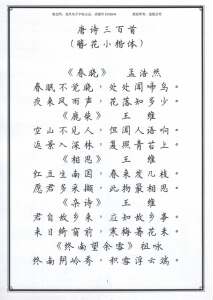 唐诗三百首
（簪花小楷体）
《春晓》 孟浩然
春眠不觉晓，处处闻啼鸟。
夜来风雨声，花落知多少。
《鹿柴》 王维
空山不见人，但闻人语响。
返景入深林，复照青苔上。
《相思》 王维
红豆生南国，春来发几枝。
愿君多采撷，此物最相思。
《杂诗》 王维
君自故乡来，应知故乡事。
来日绮窗前，寒梅著花未。
《终南望余雪》 祖咏
终南阴岭秀，积雪浮云端。
1